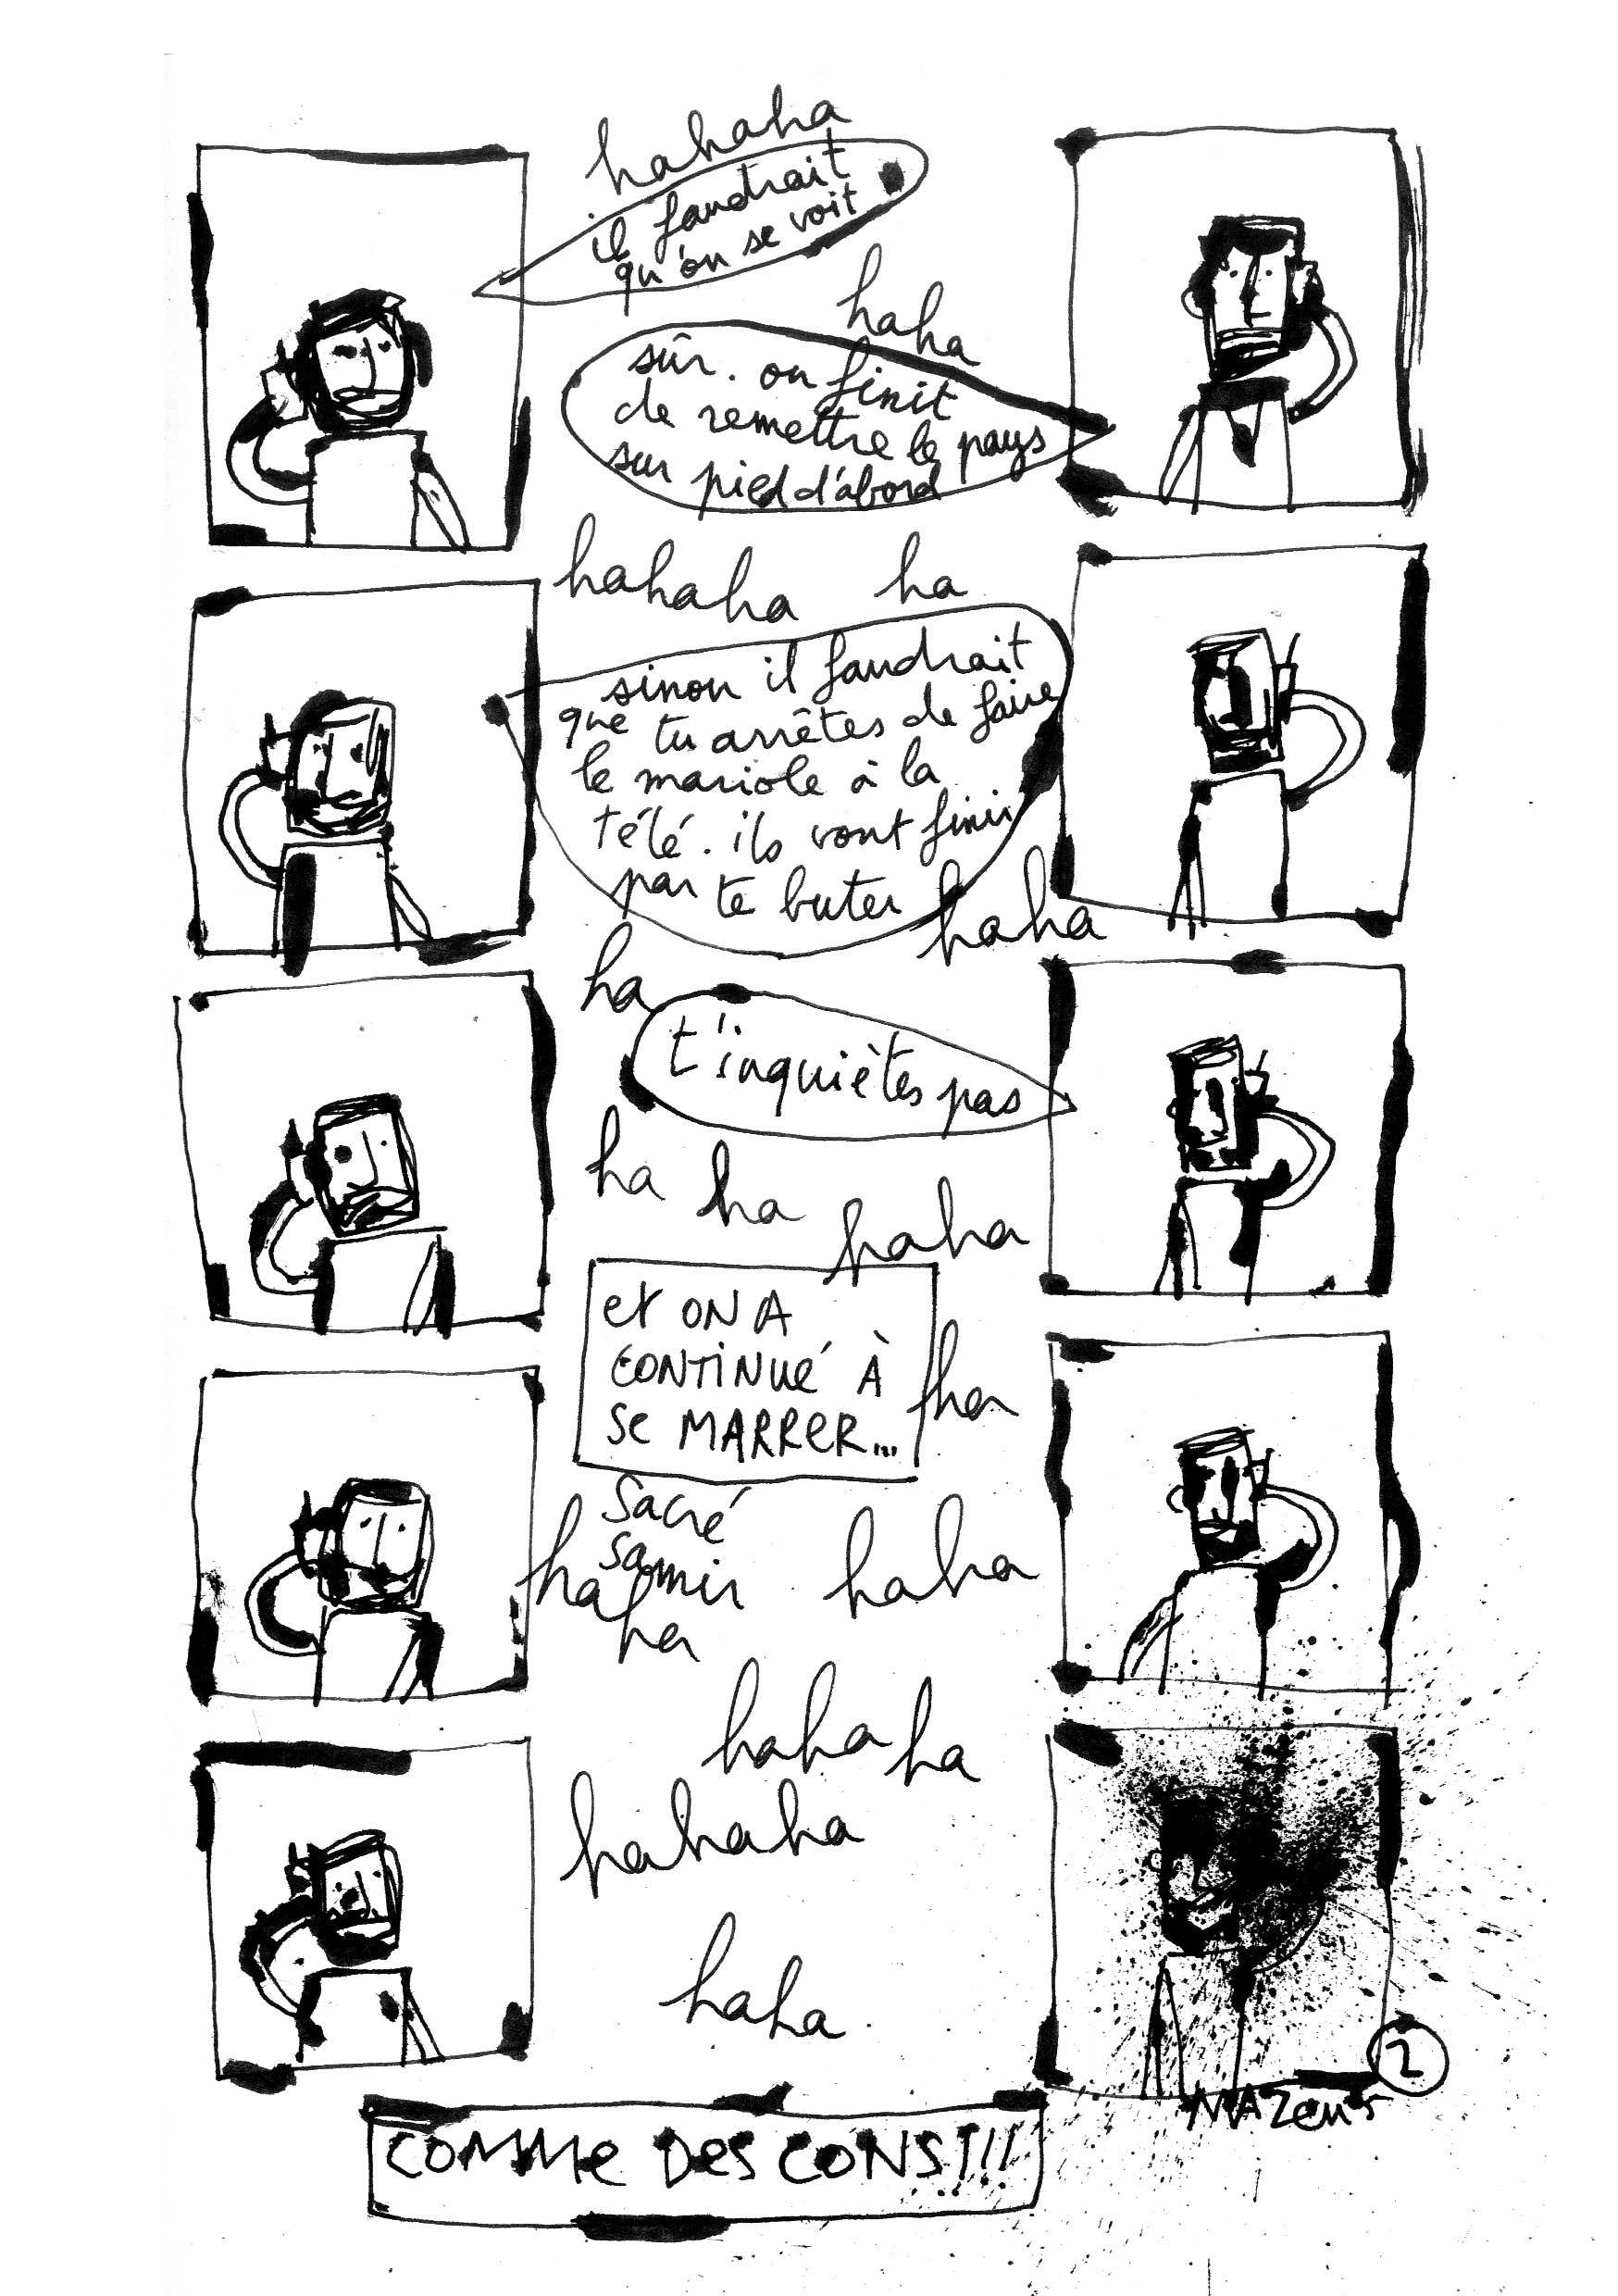 hahaha
il faudrait
qu'on se voit
haha
sûr. on finit
de remettre le pays
sur pied d'abord
hahaha ha
sinon il faudrait
que tu arrêtes de faire
le mariole à la
télé. ils vont finir
par te buter
haha
ha
t'inquiètes pas
ha ha haha
et ON A
CONTINUÉ À
Se MARRER...
ha
Sacré
Samir
haha
ha
haha
haha ha
hahaha
haha
2
MAZen
COMMe Des CONS!!!